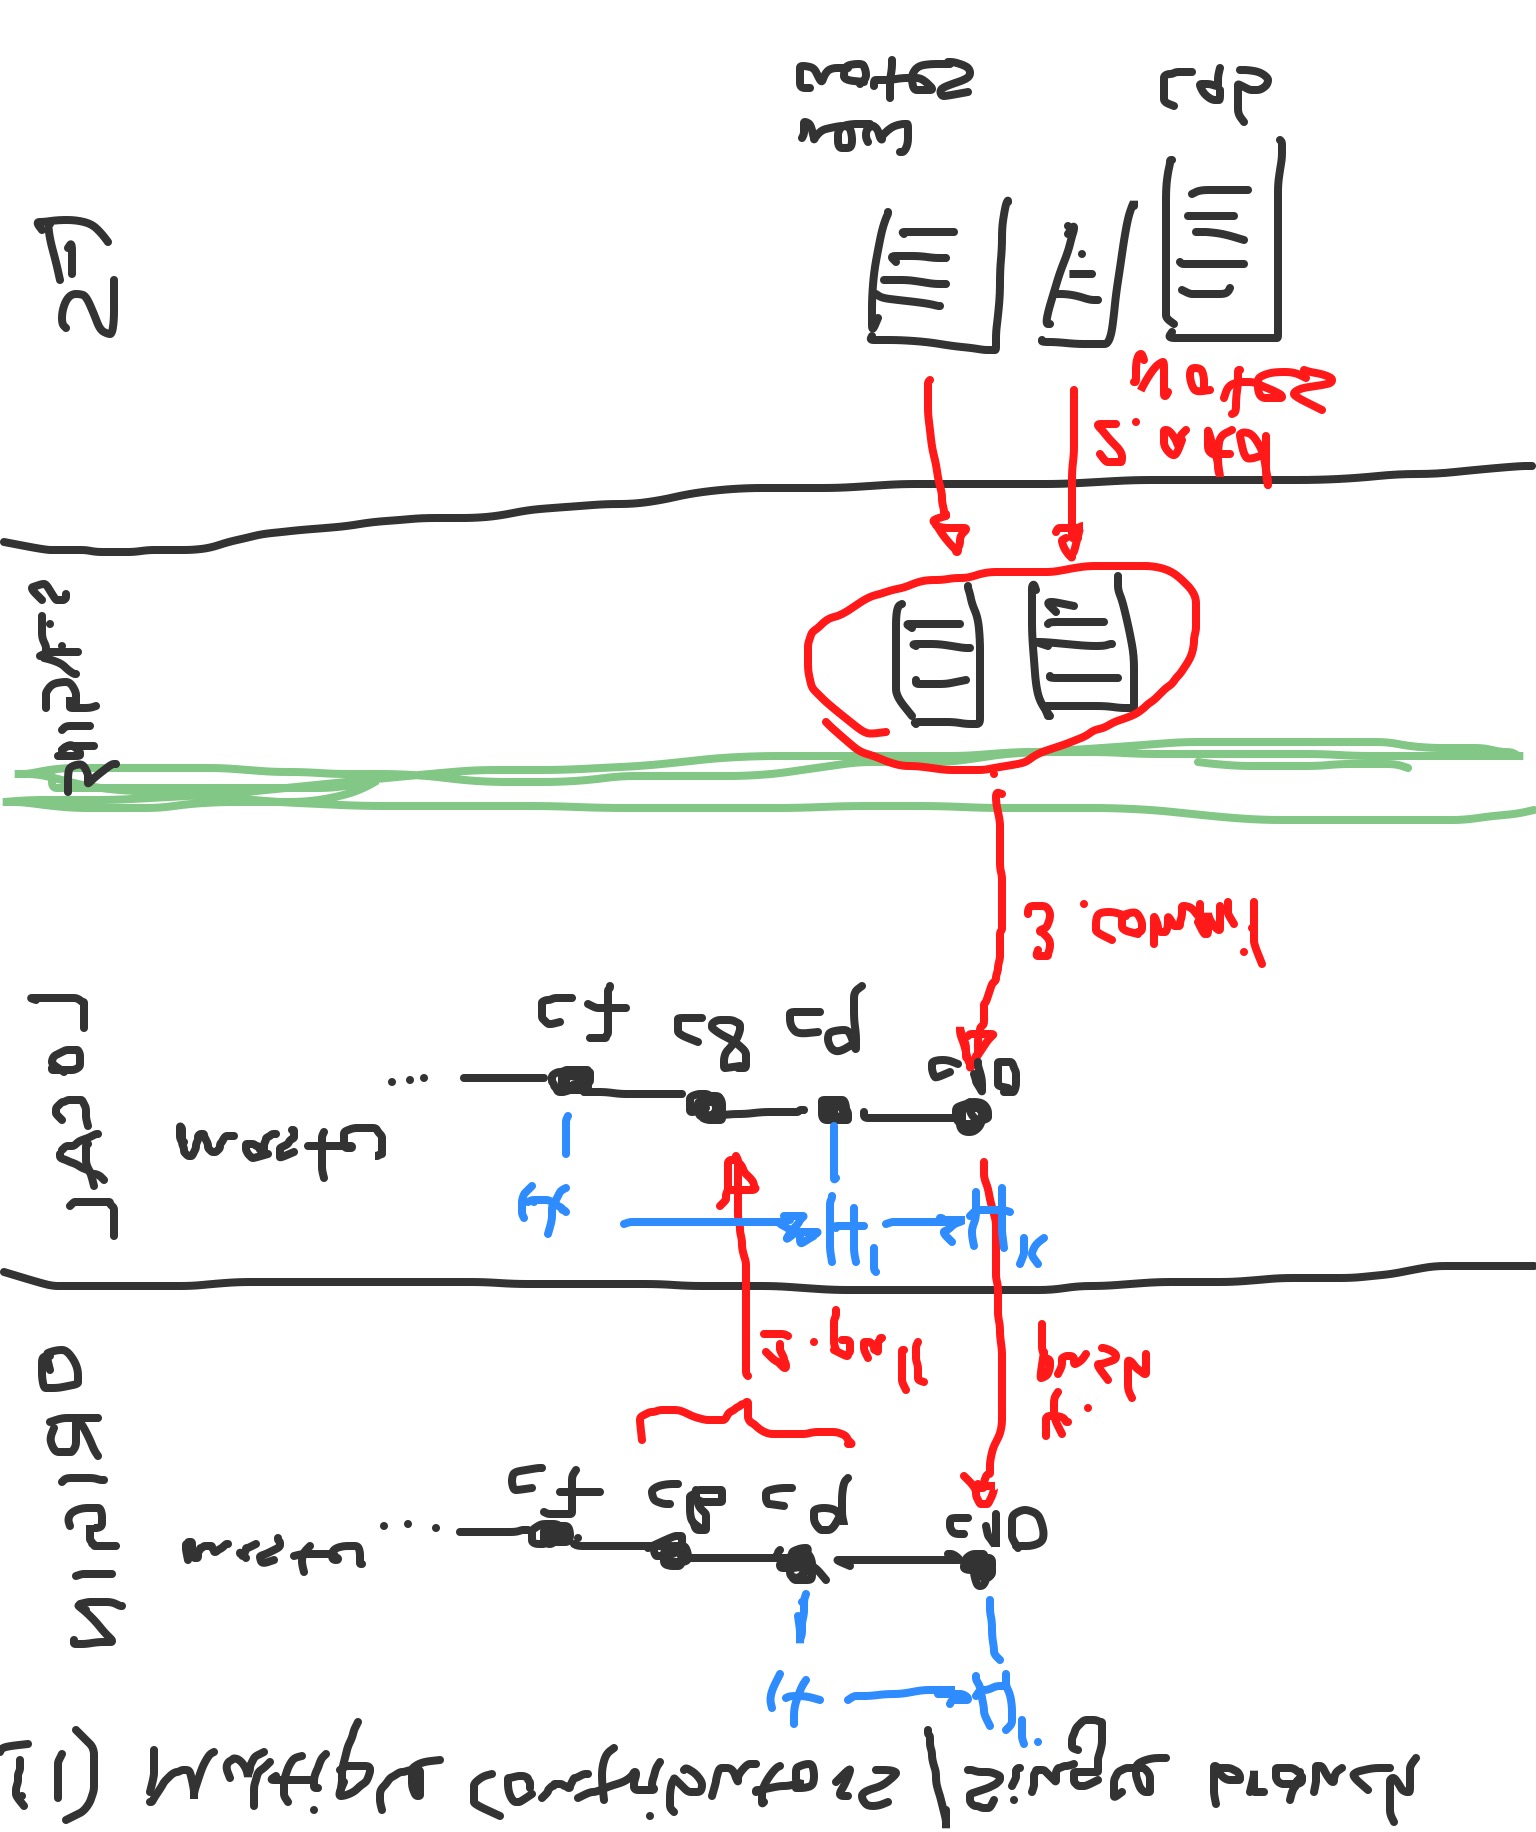 (1) Multiple Contributors / Single branch
H H'
ORIGIN
master ...
c7 c8 c9 c10
1. pull
4. push
LOCAL
H H' H"
master
...
c7 c8 c9 c10
3. commit
STAGING
2. add
notes
FS
new
notes